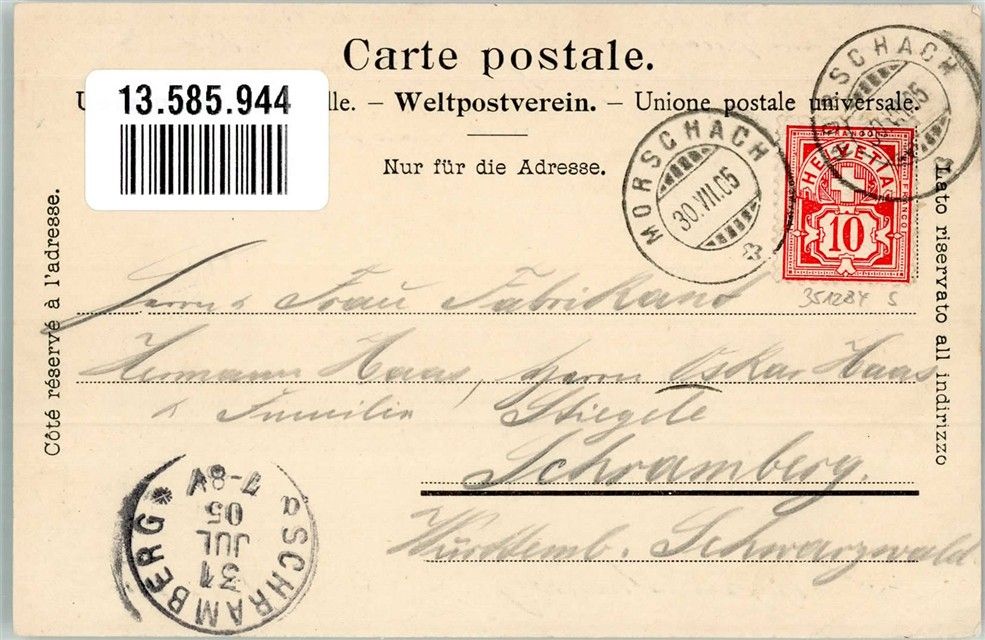 Carte postale.
13.585.944
U lle. – Weltpostverein. – Unione postale universale.
Nur für die Adresse.
MORSCHACH
30.VII.05
RSCHACH
05
FRANCO
HELVETIA
10
351284 S
Côté réservé à l'adresse.
Lato riservato all indirizzo
Herrn & Frau Fabrikant
Hermann Haas, Herrn Oskar Haas
& Familie Stiegele
Schramberg.
Württemb. Schwarzwald
SCHRAMBERG
a
31
JUL
05
7-8V